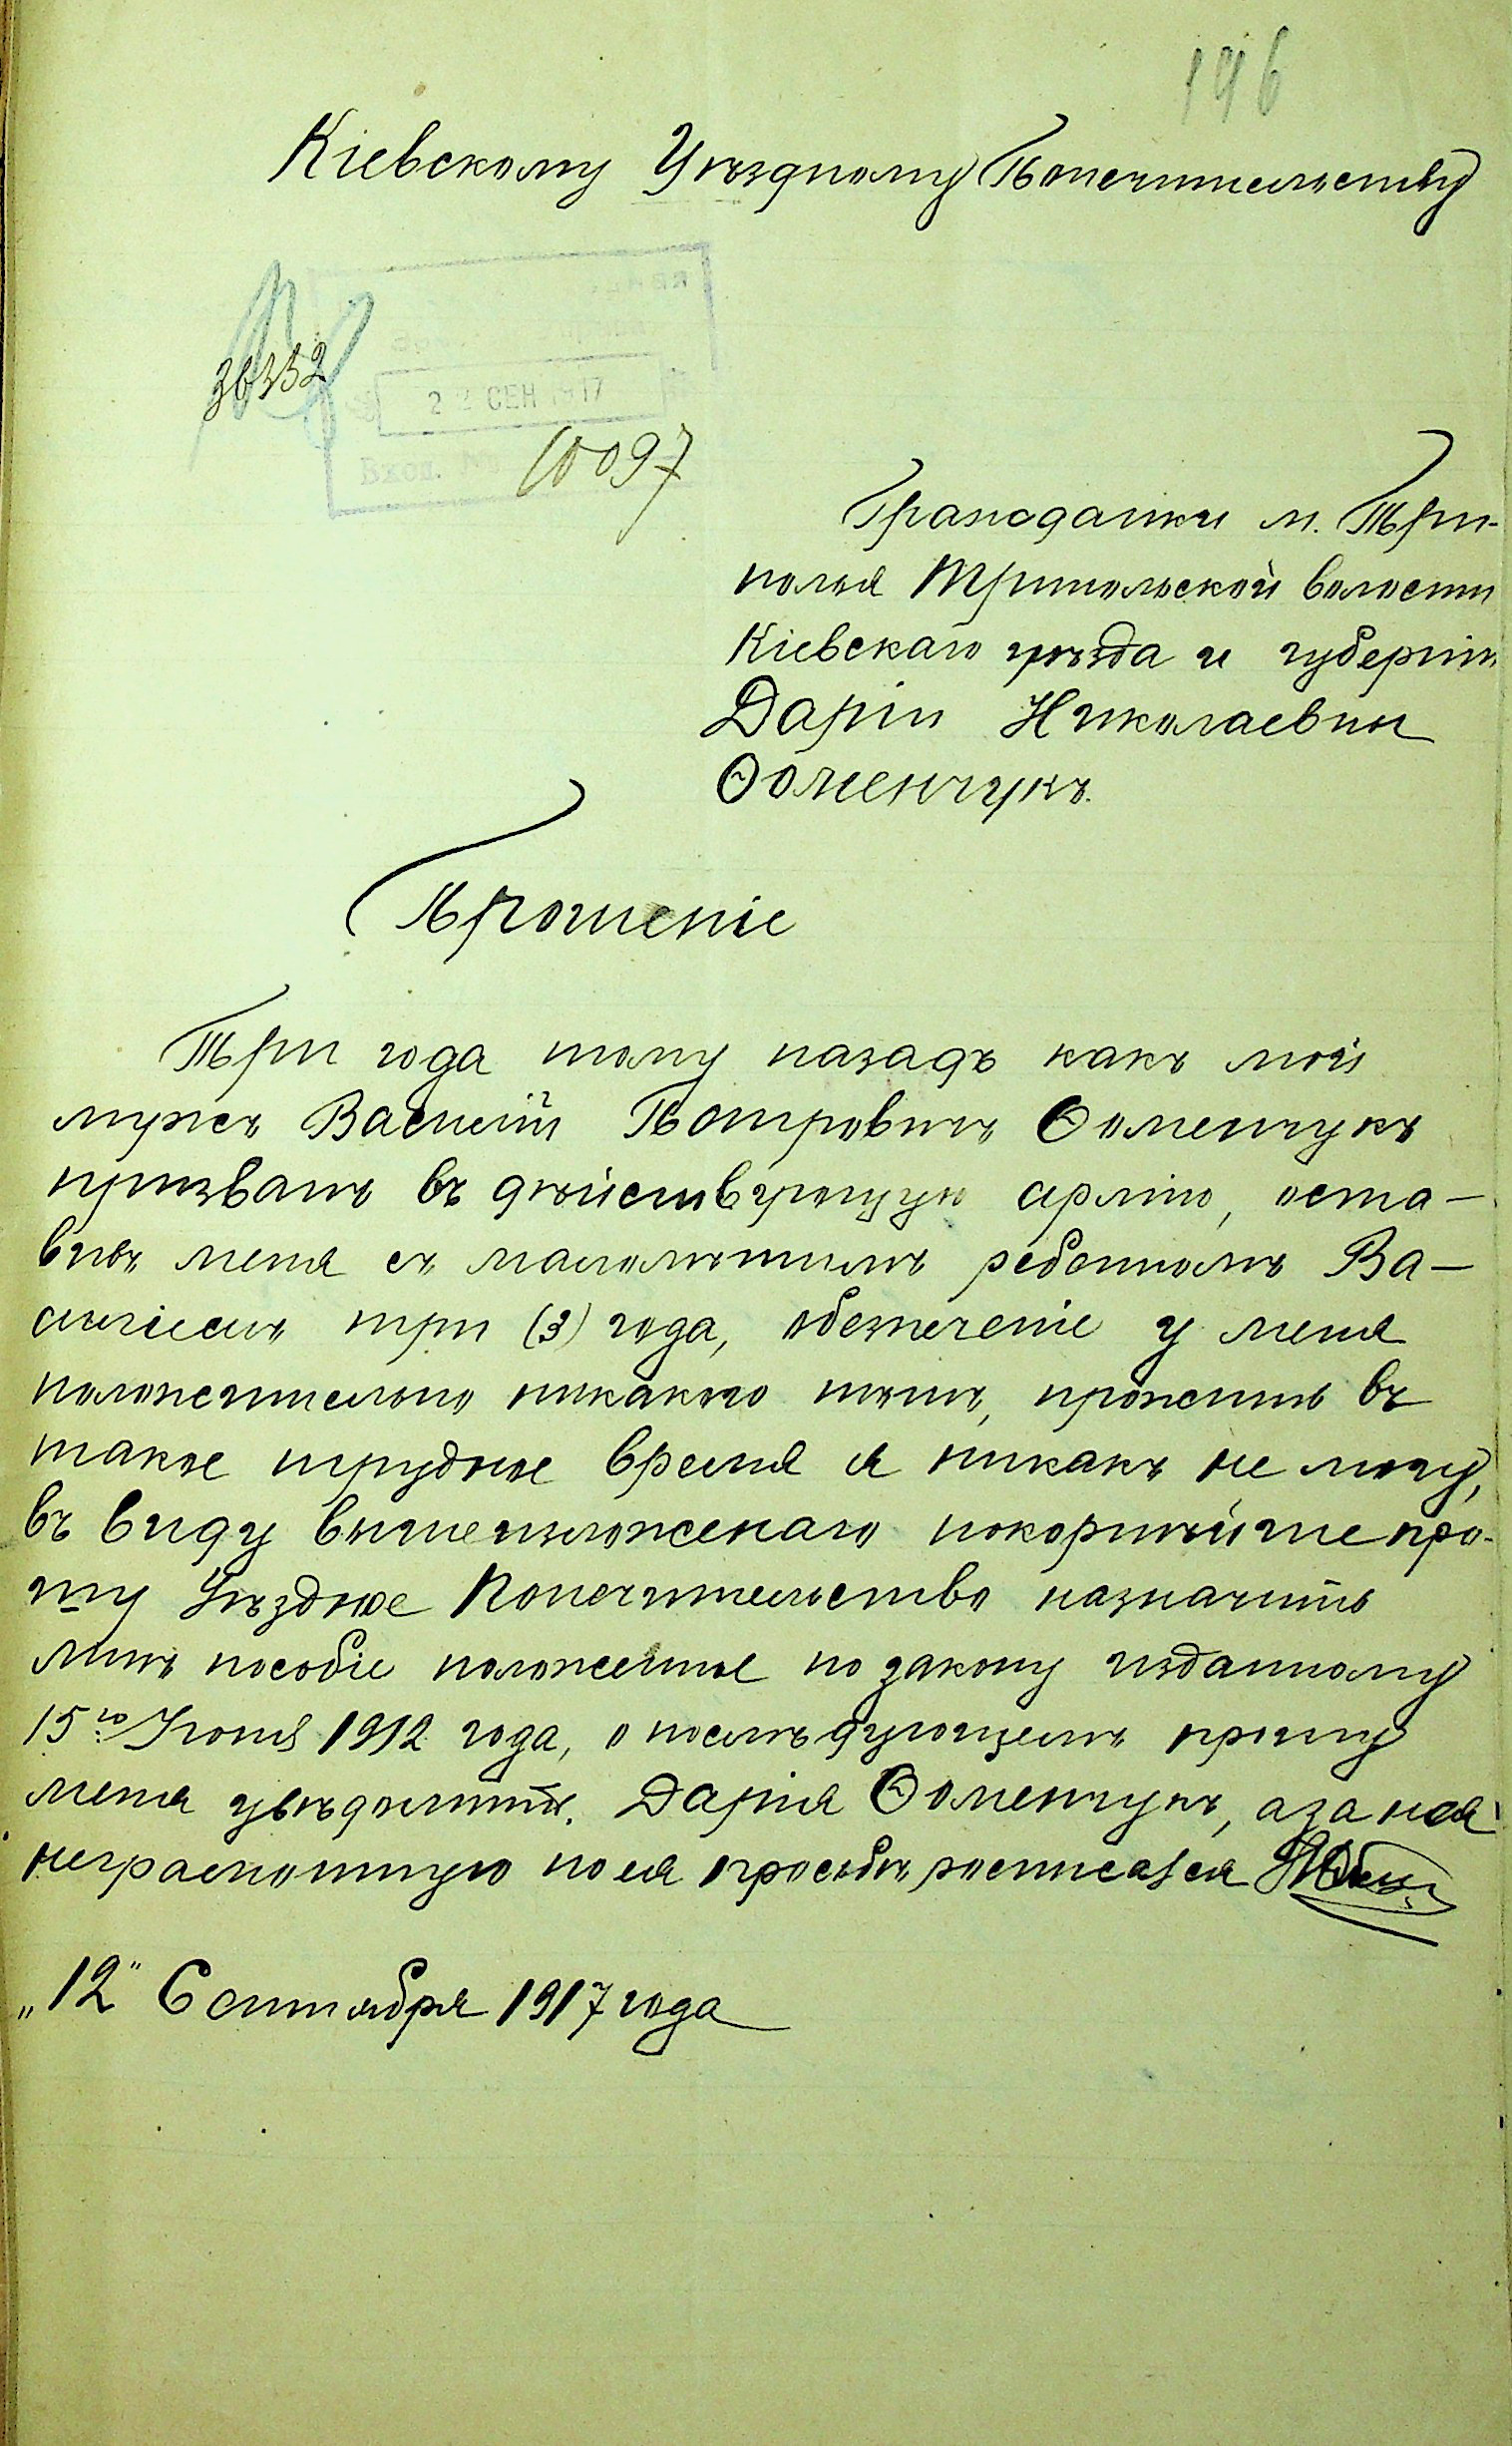 196
Кіевскому Уѣздному Попечительству
36352
22 СЕН 1917
Вход. №
10097
Гражданки м. Три-
полья Трипольской волости
Кіевскаго уѣзда и губерніи
Даріи Николаевны
Ѳоменчукъ.
Прошеніе
Три года тому назадъ какъ мой
мужъ Василій Петровичъ Ѳоменчукъ
призванъ въ дѣйствующую армію, оста-
вивъ меня съ малолѣтнимъ ребенкомъ Ва-
силіемъ три (3) года, обезпеченіе у меня
положительно никакого нѣтъ, прожить въ
такое трудное время я никакъ не могу,
въ виду вышеизложенаго покорнѣйше про-
шу Уѣздное Попечительство назначить
мнѣ пособіе положенное по закону изданному
15го Іюня 1912 года, о послѣдующемъ прошу
меня увѣдомить. Дарія Ѳоменчукъ, а за нея
неграмотную по ея просьбѣ росписался
„12" Сентября 1917 года